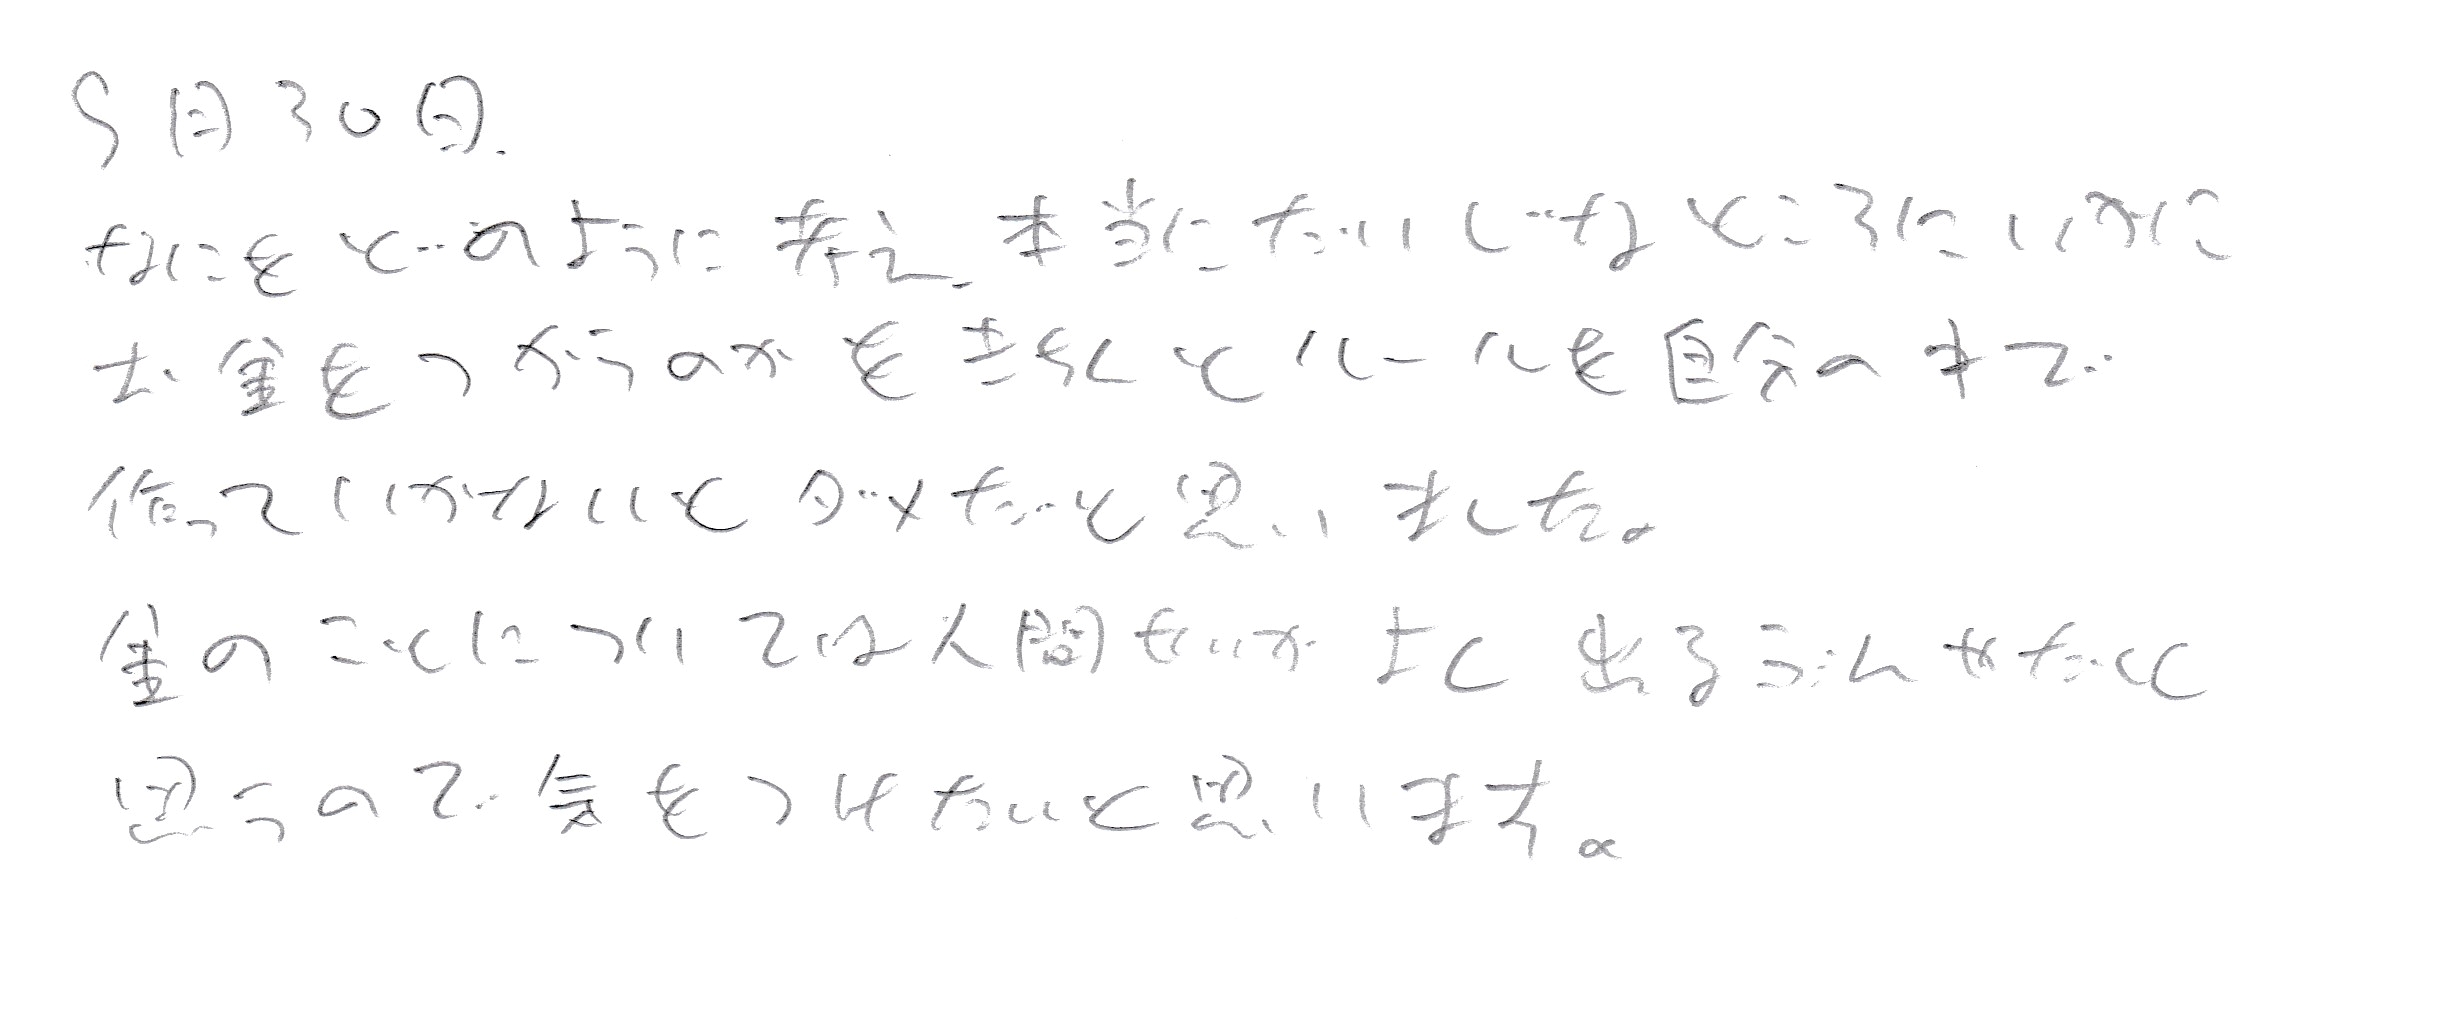 5月30日.
なにをどのように考え、本当にだいじなところにいかに
お金をつかうのかを きちんとルールを自分の中で
作っていかないとダメだと思いました。
金のことについては人間せいがよく出る
思うので気をつけたいと思います。